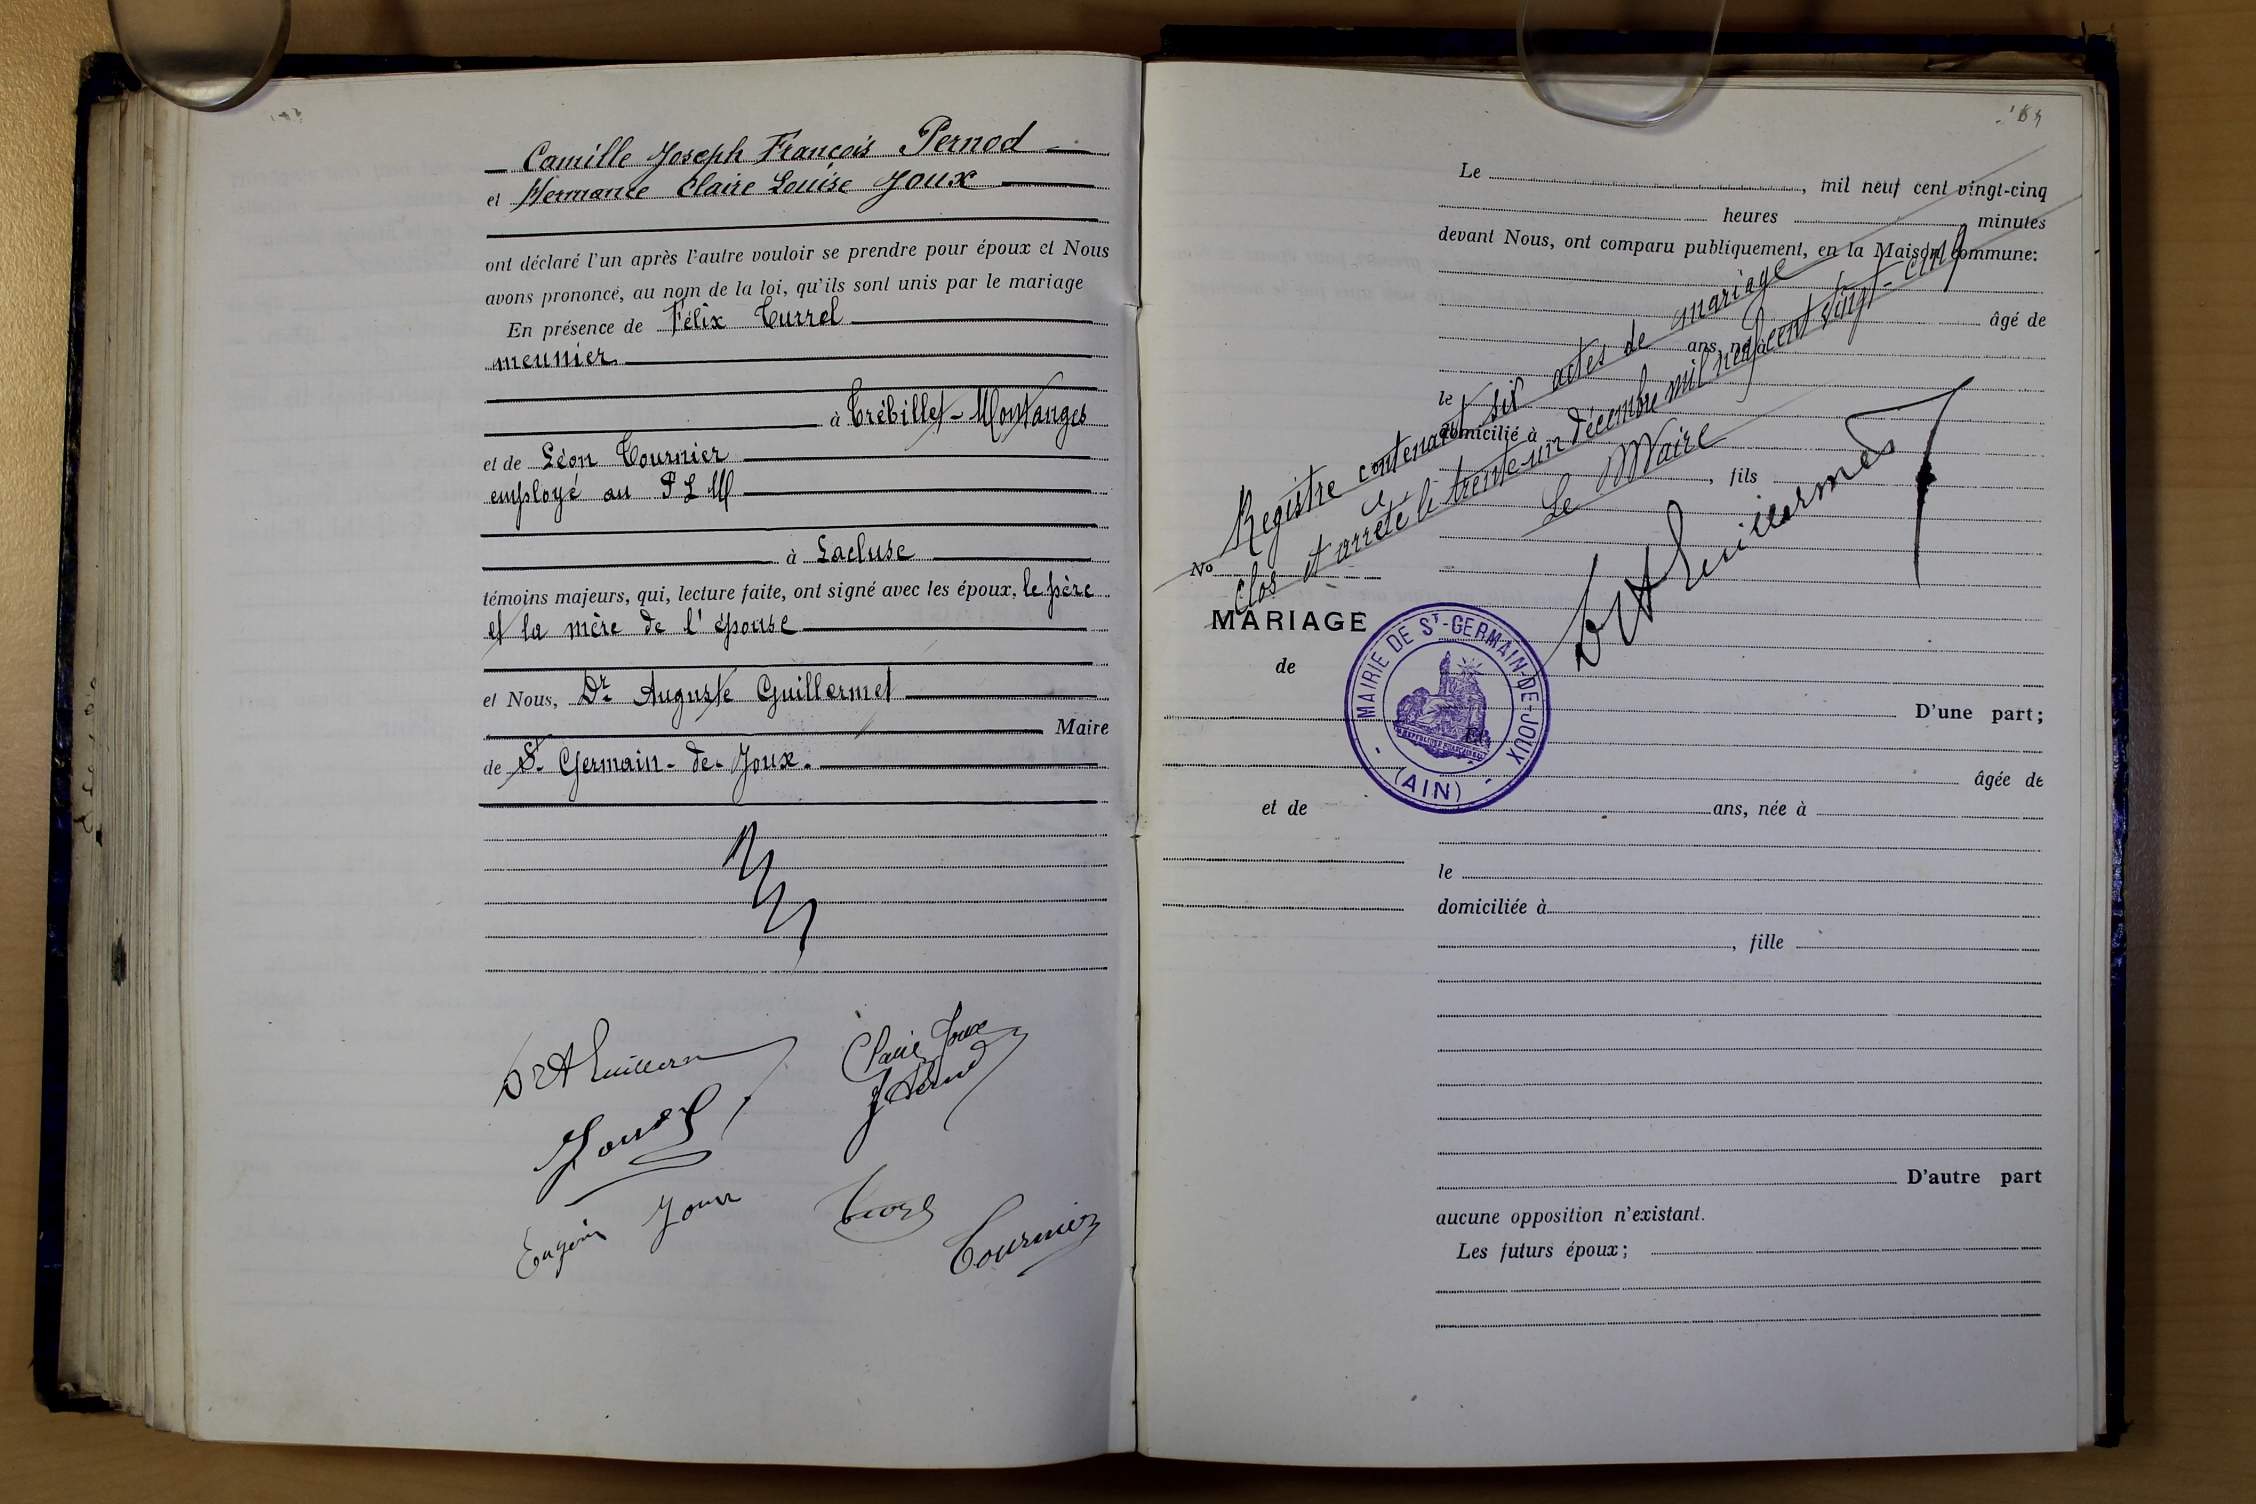 Camille Joseph François Pernod
et Hermance Claire Louise Joux
ont déclaré l'un après l'autre vouloir se prendre pour époux et Nous
avons prononcé, au nom de la loi, qu'ils sont unis par le mariage
En présence de Félix Turrel
meunier
à Trébillet-Montanges
et de Léon Tournier
employé au P L M
à Lacluse
témoins majeurs, qui, lecture faite, ont signé avec les époux, le père
et la mère de l'épouse
et Nous, Dr Auguste Guillermet
Maire
de St Germain-de-Joux.
Dr A Guillerm
Claire Joux
Joux
Eugénie Joux
Tournier
Le , mil neuf cent vingt-cinq
heures minutes
devant Nous, ont comparu publiquement, en la Maison commune:
âgé de
ans, né à
le
domicilié à
, fils
Registre contenant six actes de mariage
clos et arrêté le trente-un décembre mil neuf cent vingt-cinq
Le Maire
Dr A Guillermet
No
MARIAGE
de
et de
MAIRIE DE ST-GERMAIN-DE-JOUX
(AIN)
D'une part;
âgée de
ans, née à
le
domiciliée à
, fille
D'autre part
aucune opposition n'existant.
Les futurs époux;